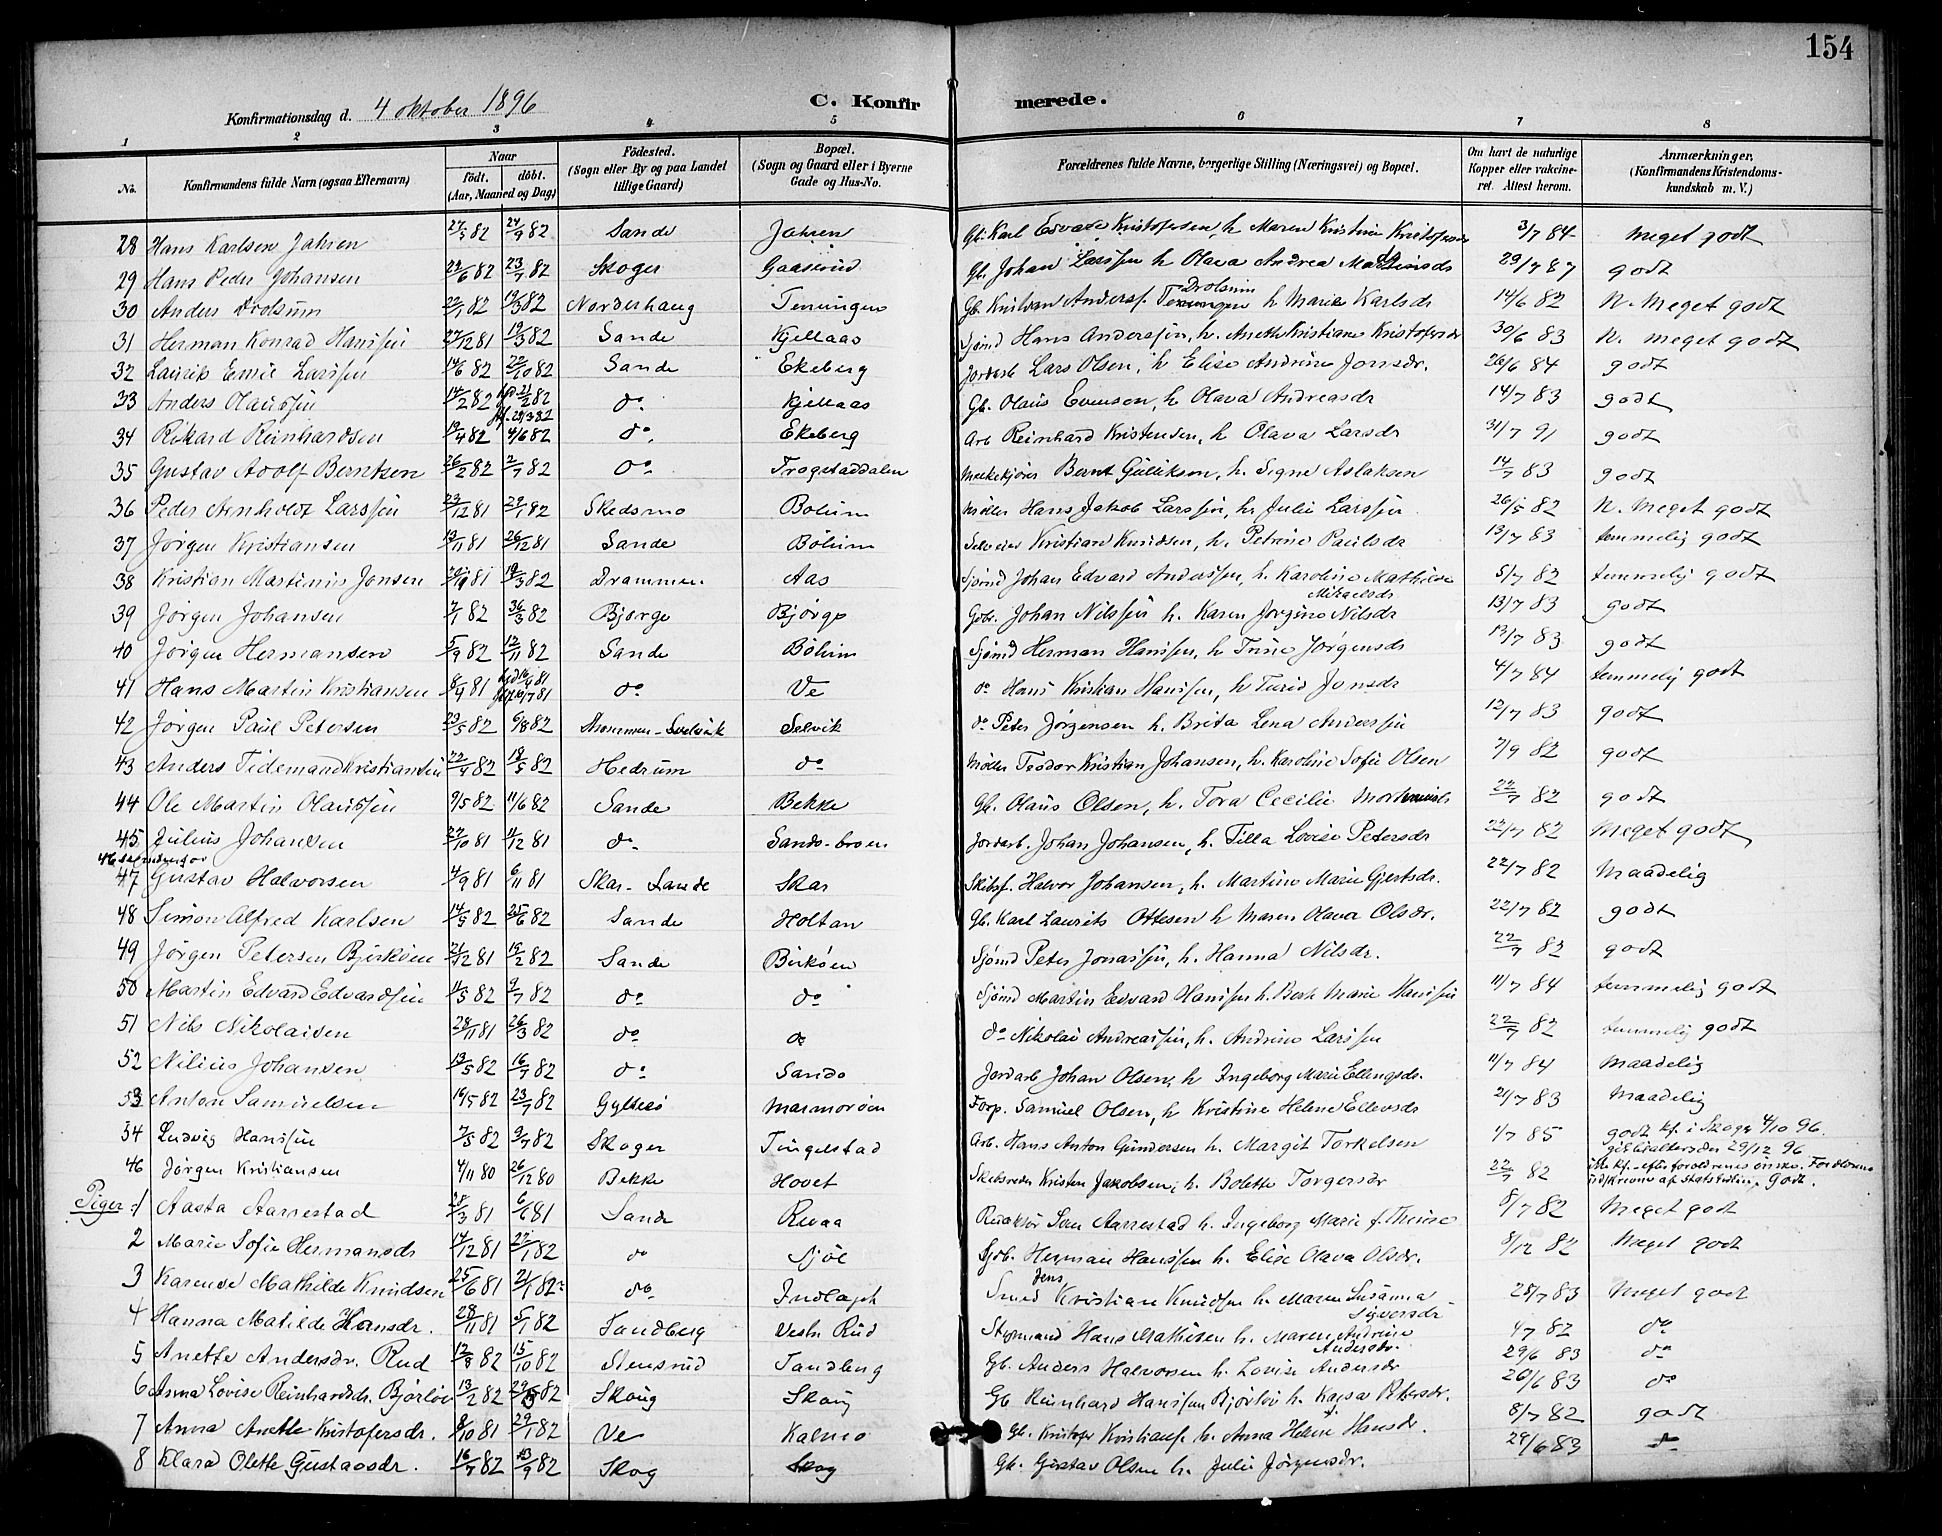 154
Konfirmationsdag d. 4 oktober 1896
C. Konfirmerede.
1 2 3 4 5 6 7 8
No. Konfirmandens fulde Navn (ogsaa Efternavn) Naar födt. döbt. (Aar, Maaned og Dag) Födested. (Sogn eller By og paa Landet tillige Gaard) Bopæl. (Sogn og Gaard eller i Byerne Gade og Hus-No. Forældrenes fulde Navne, borgerlige Stilling (Næringsvei) og Bopæl. Om havt de naturlige Kopper eller vakcineret. Attest herom. Anmærkninger. (Konfirmandens Kristendomskundskab m. V.)
28 Hans Karlsen Jahren 27/5 82 24/9 82 Sande Jahren Gb. Karl Edvard Kristofersen, h Maren Kristine Kristofersen 3/7 84 meget godt
29 Hans Peder Johansen 22/6 82 23/7 82 Skoger Gaaserud Gb. Johan Larssen h Olava Andrea 29/7 87 godt
30 Anders Drolsum 22/1 82 19/3 82 Norderhaug Temingen Gb. Kristian Anders. Drolsum h Marie Karlsdr 14/6 82 N. Meget godt
31 Herman Konrad Hanssen 27/12 81 19/3 82 Sande Kjellaas Sjömd Hans Anderssen, h. Anette Kristiane Kristofersdr 30/6 83 N. meget godt
32 Laurits Emil Larssen 14/6 82 22/10 82 Sande Ekeberg Jordarb Lars Olsen, h Elise Andrine Jonsdr. 26/6 84 godt
33 Anders Olaussen 14/2 82 hjd 21/2 82 jf. 29/3 82 do Kjellaas Gb. Olaus Evensen, h Olava Andreasdr 14/7 83 godt
34 Rikard Reinhardsen 19/4 82 4/6 82 do. Ekeberg Arb Reinhard Kristensen, h Olava Larsdr 31/7 91 godt
35 Gustav Adolf Berntsen 26/2 82 2/7 82 Do Trogstaddalen Melkekjörer Bernt Gulliksen, h. Signe Aslaksen 14/7 83 godt
36 Peder Arnholdt Larssen 23/12 81 29/1 82 Skedsmo Bölum Möller Hans Jakob Larssen, h. Julie Larssen 26/5 82 N. Meget godt
37 Jörgen Kristiansen 19/11 81 26/12 81 Sande Bölum Selveier Kristian Knudsen, h. Petrine Paulsdr 13/7 83 temmelig godt
38 Kristian Martinius Jonsen 81 19/3 82 Drammen Aas Sjömd Johan Edvard Anderssen, h. Karoline Mathilde Mikaelsdr 5/7 82 temmelig godt
39 Jörgen Johansen 7/1 82 26/3 82 Bjorge Bjørge Gbr. Johan Nilssen h. Karen Jorgine Nilsdr 13/7 83 godt
40 Jørgen Hermansen 5/9 82 12/11 82 Sande Bölum Sjömd Herman Hanssen, h Trine Jørgensdr 12/7 83 godt
41 Hans Martin Kristiansen 8/4 81 hjd 16/4 81 jf. 10/7 81 do Ve do Hans Kristian Hanssen, h Turid Jonsdr 4/7 84 temmelig godt
42 Jørgen Paul Petersen 23/5 82 6/8 82 Strommen-Svelvik Selvik do Peter Jørgensen h. Brita Lena Anderssen 12/7 83 godt
43 Anders Tidemand Kristiansen 22/4 82 18/5 82 Hedrum do Möller Teodor Kristian Johansen, h. Karoline Sofie Olsen 7/9 82 godt
44 Ole Martin Olaussen 9/5 82 11/6 82 Sande Bekke Gb. Olaus Olsen, h. Tora Cecilie 22/7 82 godt
45 Julius Johansen 27/10 81 4/12 81 do Sande-broen Jordarb. Johan Johansen, h. Tilla Lovise Petersdr 22/7 82 Meget godt
46 se nedenfor
47 Gustav Halvorsen 4/9 81 6/11 81 Skar-Sande Skar Skibsf. Halvor Johansen, h. Martine Marie Gjertsdr. 22/7 82 Maadelig
48 Simon Alfred Karlsen 14/5 82 25/6 82 Sande Holtan Gb. Karl Laurits Ottesen h Maren Olava Olsdr. 22/7 82 godt
49 Jørgen Petersen Bjerköen 21/12 81 19/2 82 Sande Birköen Sjömd Peter Jonassen, h. Hanna Nilsdr. 22/7 82 godt
50 Martin Edvard Edvardsen 4/5 82 9/7 82 do do Sjömd Martin Edvard Hanssen h. Berte Marie Hanssen 11/7 84 temmelig godt
51 Nils Nikolaisen 28/11 81 26/3 82 do do do Nikolai Andreassen, h. Andrine Larssen 22/7 82 temmelig godt
52 Nilius Johansen 13/5 82 16/7 82 do Sande Jordarb Johan Olsen, h Ingeborg Marie Ellingsdr. 11/7 84 Maadelig
53 Anton Samuelsen 16/5 82 23/7 82 Marmoröen Forp. Samuel Olsen, h Kristine Helene Ellevsdr 21/7 83 Maadelig
34 Ludvig Hanssen 7/5 82 9/7 82 Skoger Tingelstad Arb. Hans Anton Gundersen h. Margit Torkelsen 1/7 85 godt kf. i Skoger 4/10 96
46 Jørgen Kristiansen 4/11 80 26/12 80 Bekke Hovet Skibsreder Kristen Jakobsen, h. Bolette Torgersdr 22/7 82 29/12 96 ikke kf. - efter forældrenes önske. Forældrene udskrevne af Statskirken. Godt.
Piger: 1 Aasta Aarrestad 28/3 81 6/6 81 Sande Revaa Redaktör Sven Aarrestad h. Ingeborg Marie f. Theiste 8/7 82 Meget godt
2 Marie Sofie Hermansdr 14/12 81 22/1 82 do Sjöl Gb. Herman Hanssen h. Elise Olava Olsdr. 8/12 82 Meget godt
3 Karense Mathilde Knudsen 25/6 81 2/1 82 do Indlagt Smed Jens Kristian Knudsen h. Maren Susanna Syversdr 25/7 83 Meget godt
4 Hanna Matilde Hansdr. 28/11 81 5/1 82 Sandberg Vestre Rud Styrmand Hans Mathisen h. Maren Andrine Andersdr. 4/7 82 do
5 Anette Andersdr. Rud 12/8 82 15/10 82 Stensrud Sandberg Gb. Anders Halvorsen h. Lovise Andersdr 29/6 83 do
6 Anna Lovise Reinhardsdr. Bjørløv 13/2 82 29/5 82 Skoug Skoug Gb Reinhard Hanssen Bjørløv h. Kajsa Petersdr. 26/6 83 do
7 Anna Anette Kristofersdr. 8/10 81 29/1 82 Ve Kalmo Gb. Kristofer Kristians. h. Anna Helene Hansdr. 8/7 82 godt
8 Klara Olette Gustavsdr. 16/7 82 13/9 82 Skog Skog Gb. Gustav Olsen h. Julie Jörgensdr. 29/6 83 do